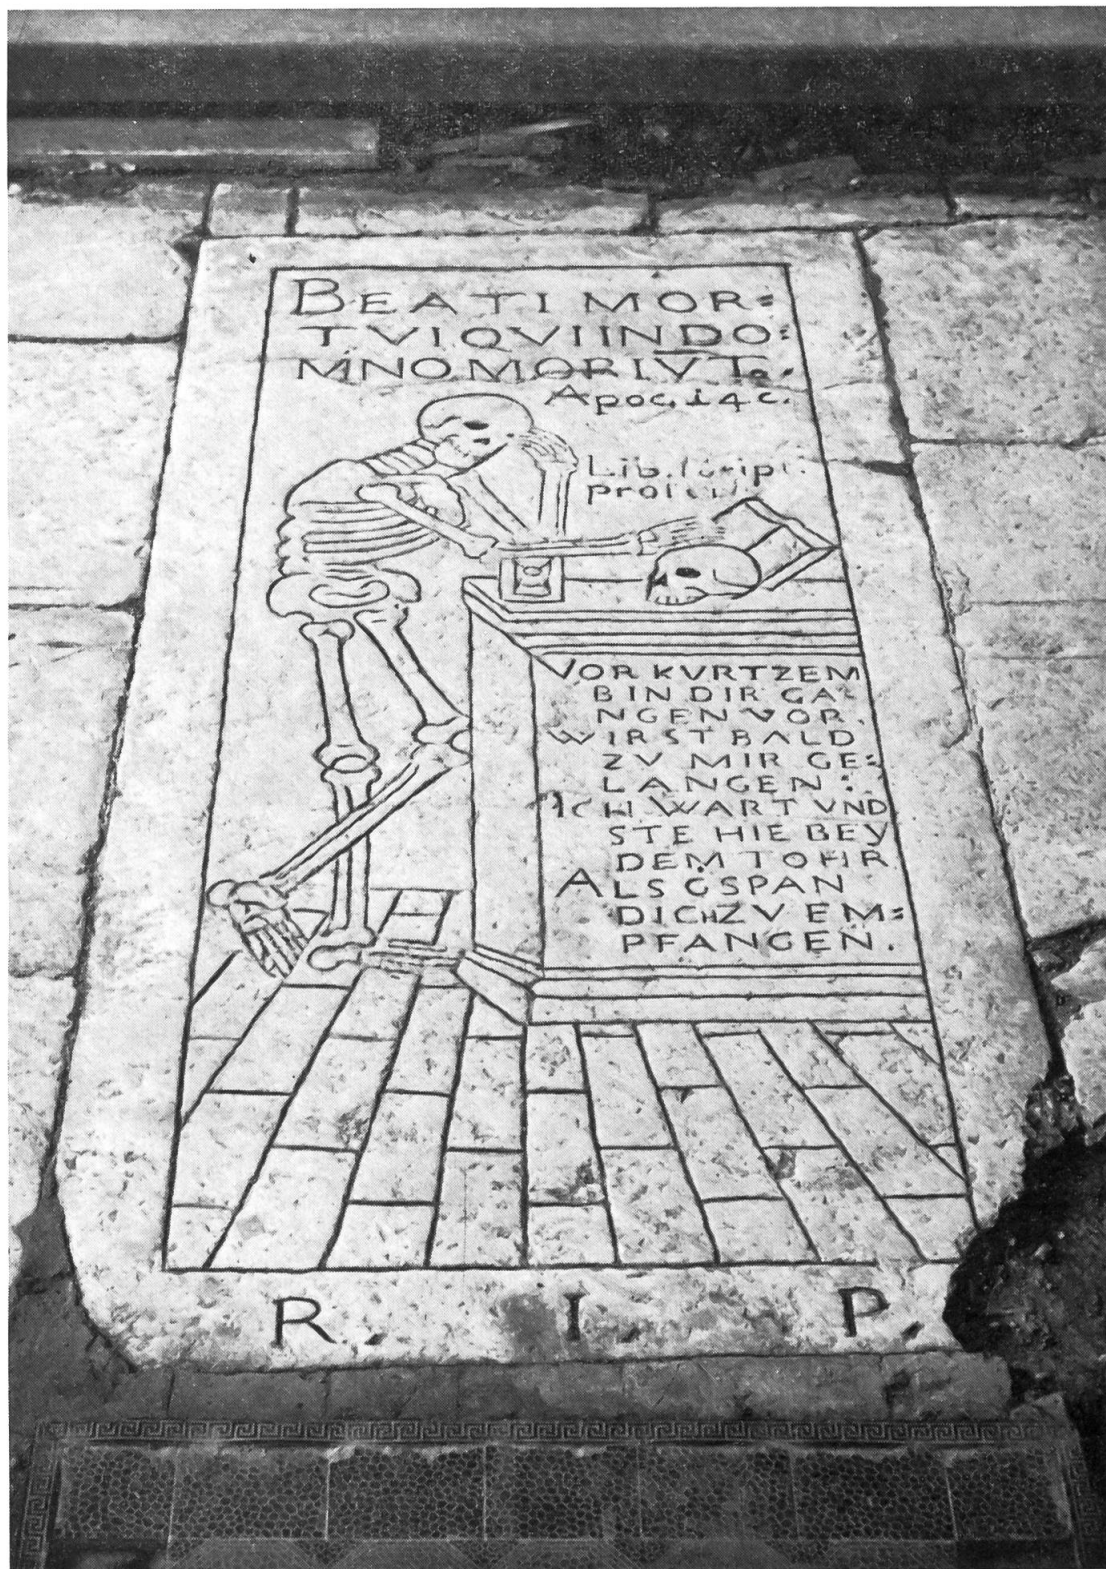 BEATI MOR=
TVI QVI IN DO=
MNO MORIV̅T.
Apoc. 14 c.
Lib.
VOR KVRTZEM
BIN DIR GA=
NGEN VOR.
WIRST BALD
ZV MIR GE=
LANGEN:
ICH WART VND
STE HIE BEY
DEM TOHR
ALS GSPAN
DICH ZV EM=
PFANGEN.
R. I. P.